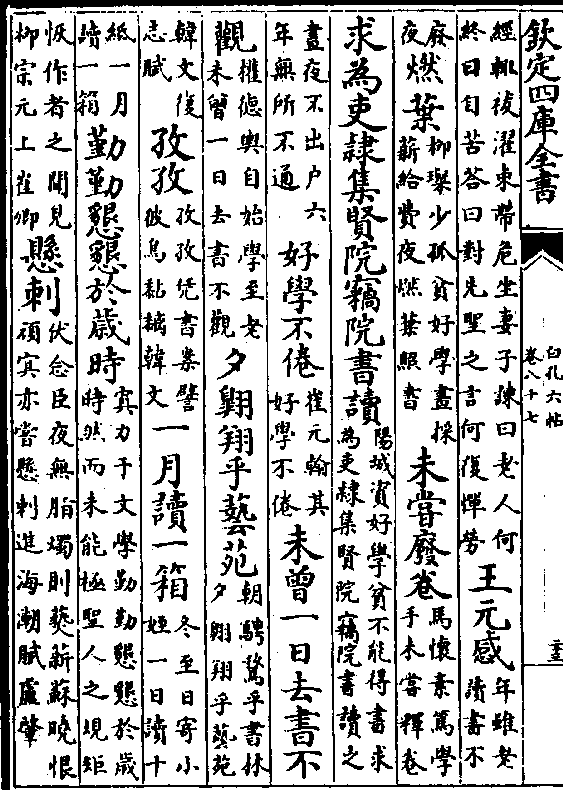 欽定四庫全書
白孔六帖
卷八十七
經輒祓濯束帶危坐妻子諫曰老人何
終日自苦答曰對先聖之言何復憚勞
王元感
年雖老
讀書不
廢
夜
燃葉
柳璨少孤貧好學晝採
薪給費夜燃葉照書
未嘗廢卷
馬懷素篤學
手未嘗釋卷
求為吏隸集賢院竊院書讀
陽城資好學貧不能得書求
為吏隸集賢院竊院書讀之
晝夜不出户六
年無所不通
好學不倦
崔元翰其
好學不倦
未曾一日去書不
觀
權德輿自始學至老
未曾一日去書不觀
夕翺翔乎藝苑
朝騁騖乎書林
夕翺翔乎藝苑
韓文復
志賦
孜孜
孜孜凭書案譬
彼鳥黏黐韓文
一月讀一箱
冬至日寄小
姪一日讀十
紙一月
讀一箱
勤勤懇懇於歳時
寘力于文學勤勤懇懇於歳
時然而未能極聖人之規矩
恢作者之聞見
柳宗元上崔卿
懸刺
伏念臣夜無脂燭則爇薪蘇晚恨
頑冥亦嘗懸刺進海潮賦盧肇